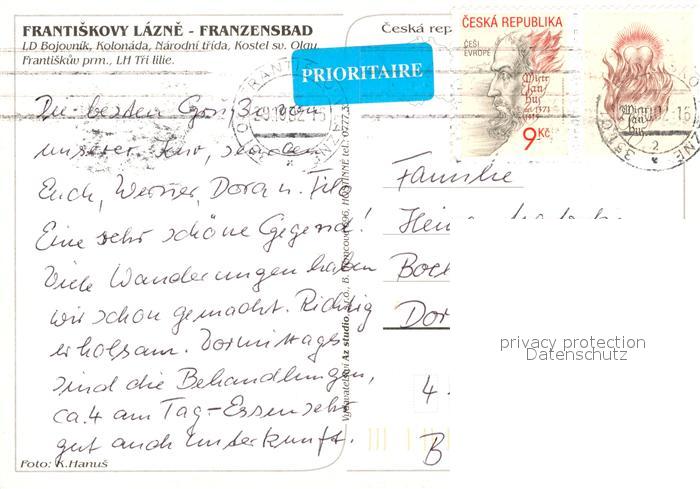 FRANTIŠKOVY LÁZNĚ - FRANZENSBAD
LD Bojovník, Kolonáda, Národní třída, Kostel sv. Olgy,
Františkův prm., LH Tři lilie.
Česká rep
PRIORITAIRE
ČESKÁ REPUBLIKA
ČEŠI
EVROPĚ
Mistr
Jan
Hus
9 Kč
Mistr
Jan
Hus
Die besten Grüße von
unserer Kur, senden
Euch, Werner, Dora u. Filo
Eine sehr schöne Gegend!
Viele Wanderungen haben
wir schon gemacht. Richtig
erholsam. Vormittags
sind die Behandlungen,
ca. 4 am Tag - Essen sehr
gut auch Unterkunft.
Familie
Hein
Boc
Dor
4
B
Vydavatelství Az studio
Foto: K.Hanuš
privacy protection
Datenschutz